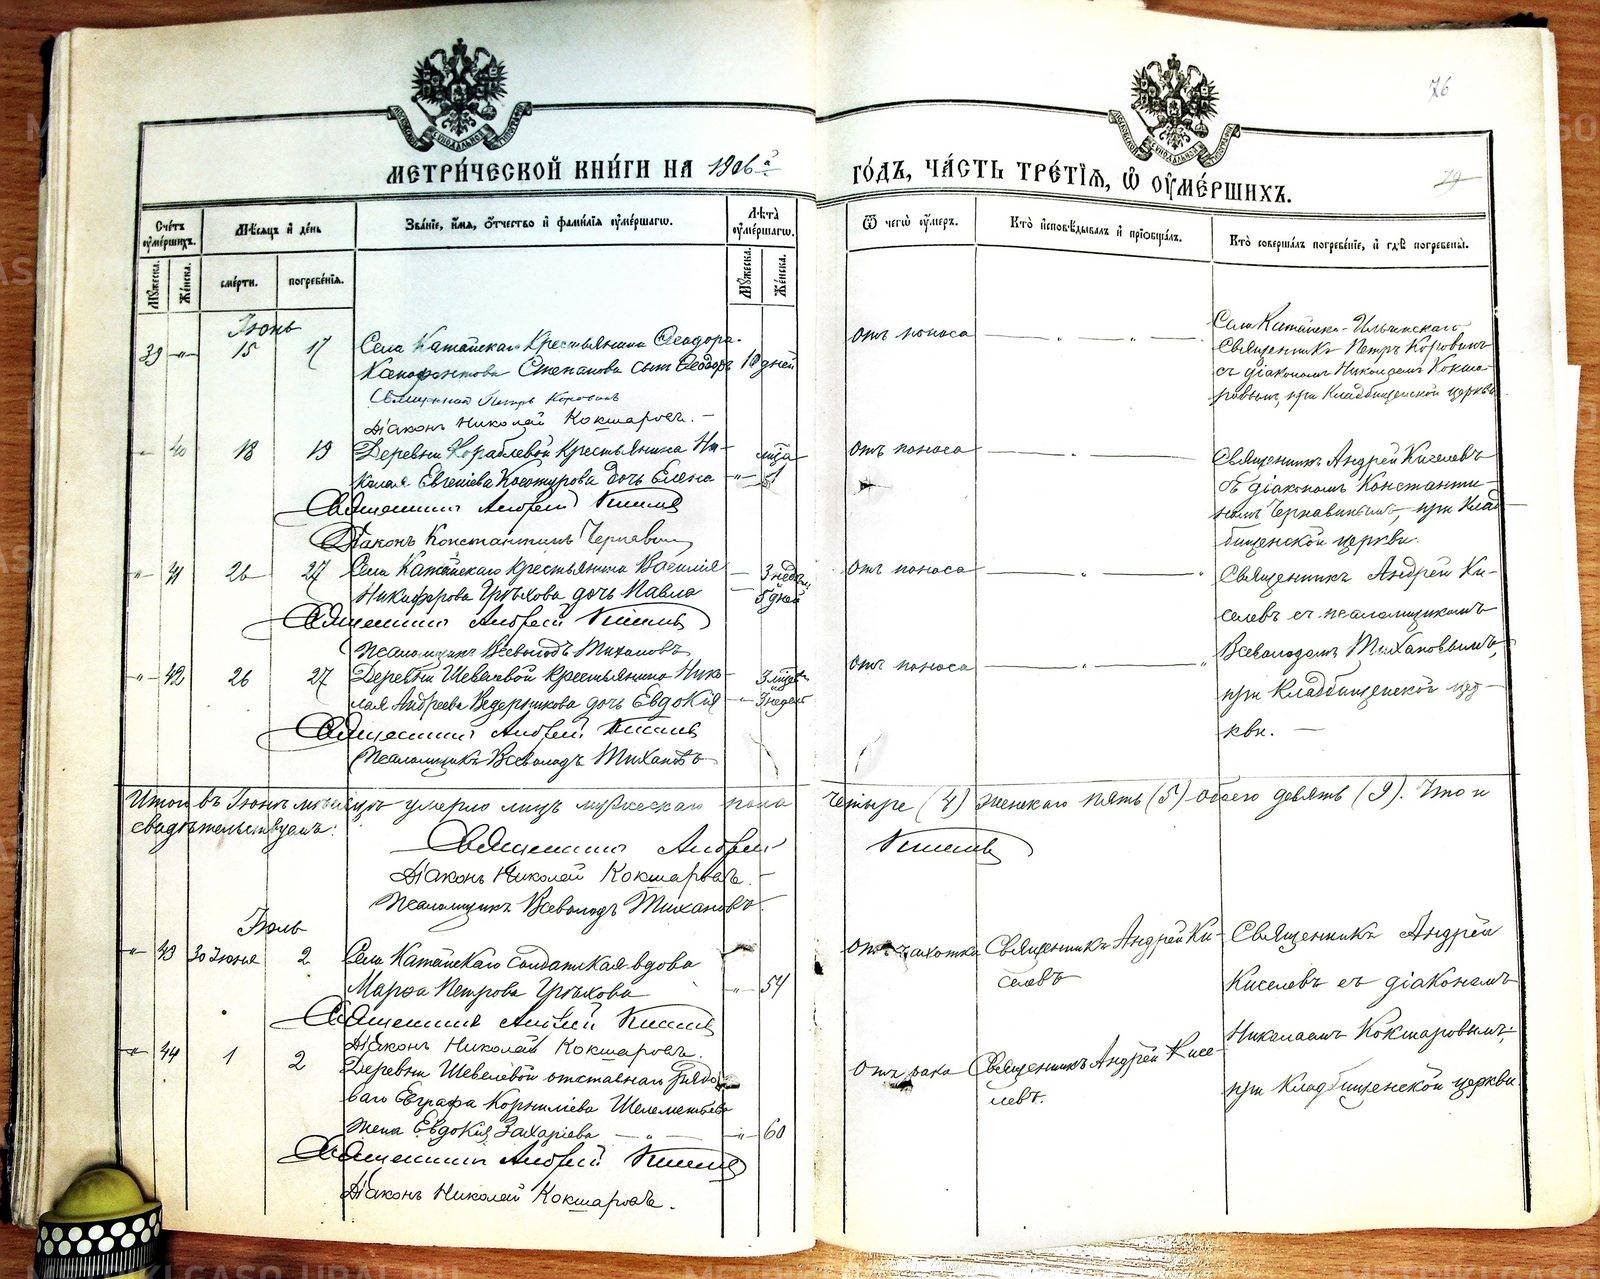 76
79
МЕТРИ́ЧЕСКОЙ КНИ́ГИ НА 1906й
ГО́ДЪ, ЧА́СТЬ ТРЕ́ТІѦ, Ѽ ОУМЕ́РШИХЪ.
Сче́тъ оуме́ршихъ.
Мѣ́сѧцъ и҆ де́нь
Зва́нїе, и҆́мѧ, ѻ҆́тчество и҆ фами́лїѧ оуме́ршагѡ.
Лѣ́та оуме́ршагѡ.
Ѿ чегѡ̀ оу́меръ.
Кто̀ и҆сповѣ́дывалъ и҆ прїѻбща́лъ.
Кто̀ соверша́лъ погребе́нїе, и҆ гдѣ̀ погребены̀.
Мꙋ́жеска.
Же́нска.
сме́рти.
погребе́нїѧ.
Мꙋ́жеска.
Же́нска.
Іюнь
39 -„- 15 17 Села Катайскаго Крестьянина Ѳеодора
Ксенофонтова Степанова сынъ Ѳеодоръ 10 дней
Священникъ Петръ Коровинъ
Діаконъ Николай Кокшаровъ.
Отъ поноса
Села Катайско-Ильинскаго
Священникъ Петръ Коровинъ
съ діакономъ Николаемъ Кокша-
ровымъ, при Кладбищенской церкви
40 18 19 Деревни Кораблевой Крестьянина Ни-
колая Евгеніева дочь Елена
Священникъ Андрей Киселевъ
Діаконъ Константинъ Чернавинъ
Отъ поноса
Священникъ Андрей Киселевъ
съ діакономъ Константи-
номъ Чернавинымъ, при Клад-
бищенской церкви.
-„- 41 26 27 Села Катайскаго крестьянина Василія
Никифорова Грѣхова дочь Павла
3 недѣли
5 дней
Священникъ Андрей Киселевъ
Псаломщикъ Всеволодъ Тихановъ
Отъ поноса
Священникъ Андрей Ки-
селевъ съ псаломщикомъ
Всеволодомъ Тихановымъ,
при Кладбищенской цер-
кви.
-„- 42 26 27 Деревни Шевелевой крестьянина Нико-
лая Андреева Ведерникова дочь Евдокія
Священникъ Андрей Киселевъ
Псаломщикъ Всеволодъ Тихановъ
Отъ поноса
Итого въ Іюнѣ мѣсяцѣ умерло лицъ мужескаго пола четыре (4) женскаго пять (5) обоего девять (9). Что и
свидѣтельствуемъ:
Священникъ Андрей Киселевъ
Діаконъ Николай Кокшаровъ.
Псаломщикъ Всеволодъ Тихановъ.
Іюль
-„- 43 30 Іюня 2 Села Катайскаго солдатская вдова
Марѳа Петрова Грѣхова -„- 54
Священникъ Андрей Киселевъ
Діаконъ Николай Кокшаровъ.
Отъ чахотки
Священникъ Андрей Ки-
селевъ
Священникъ Андрей
Киселевъ съ діакономъ
Николаемъ Кокшаровымъ,
при Кладбищенской церкви
-„- 44 1 2 Деревни Шевелевой отставнаго рядо-
ваго Евграфа Корниліева Шелементьева
жена Евдокія Захаріева -„- 60
Священникъ Андрей Киселевъ
Діаконъ Николай Кокшаровъ.
Отъ рака
Священникъ Андрей Кисе-
левъ.